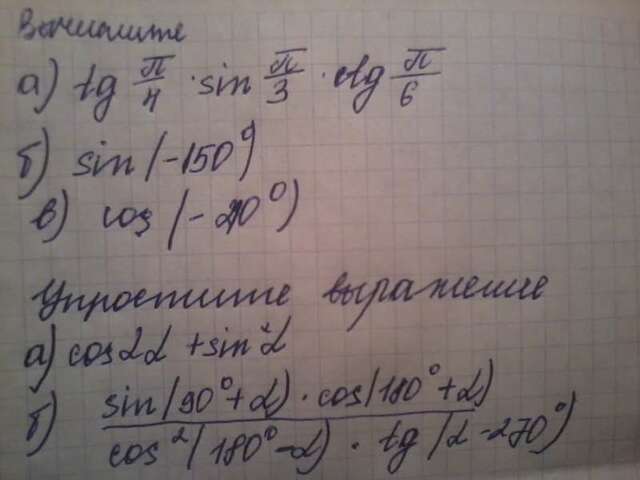 Вычислите
а) tg π/4 · sin π/3 · ctg π/6
б) sin (-150°)
в) cos (-210°)
Упростите выражение
а) cos2α + sin²α
б) sin(90°+α) · cos(180°+α)
cos²(180°-α) · tg(α-270°)